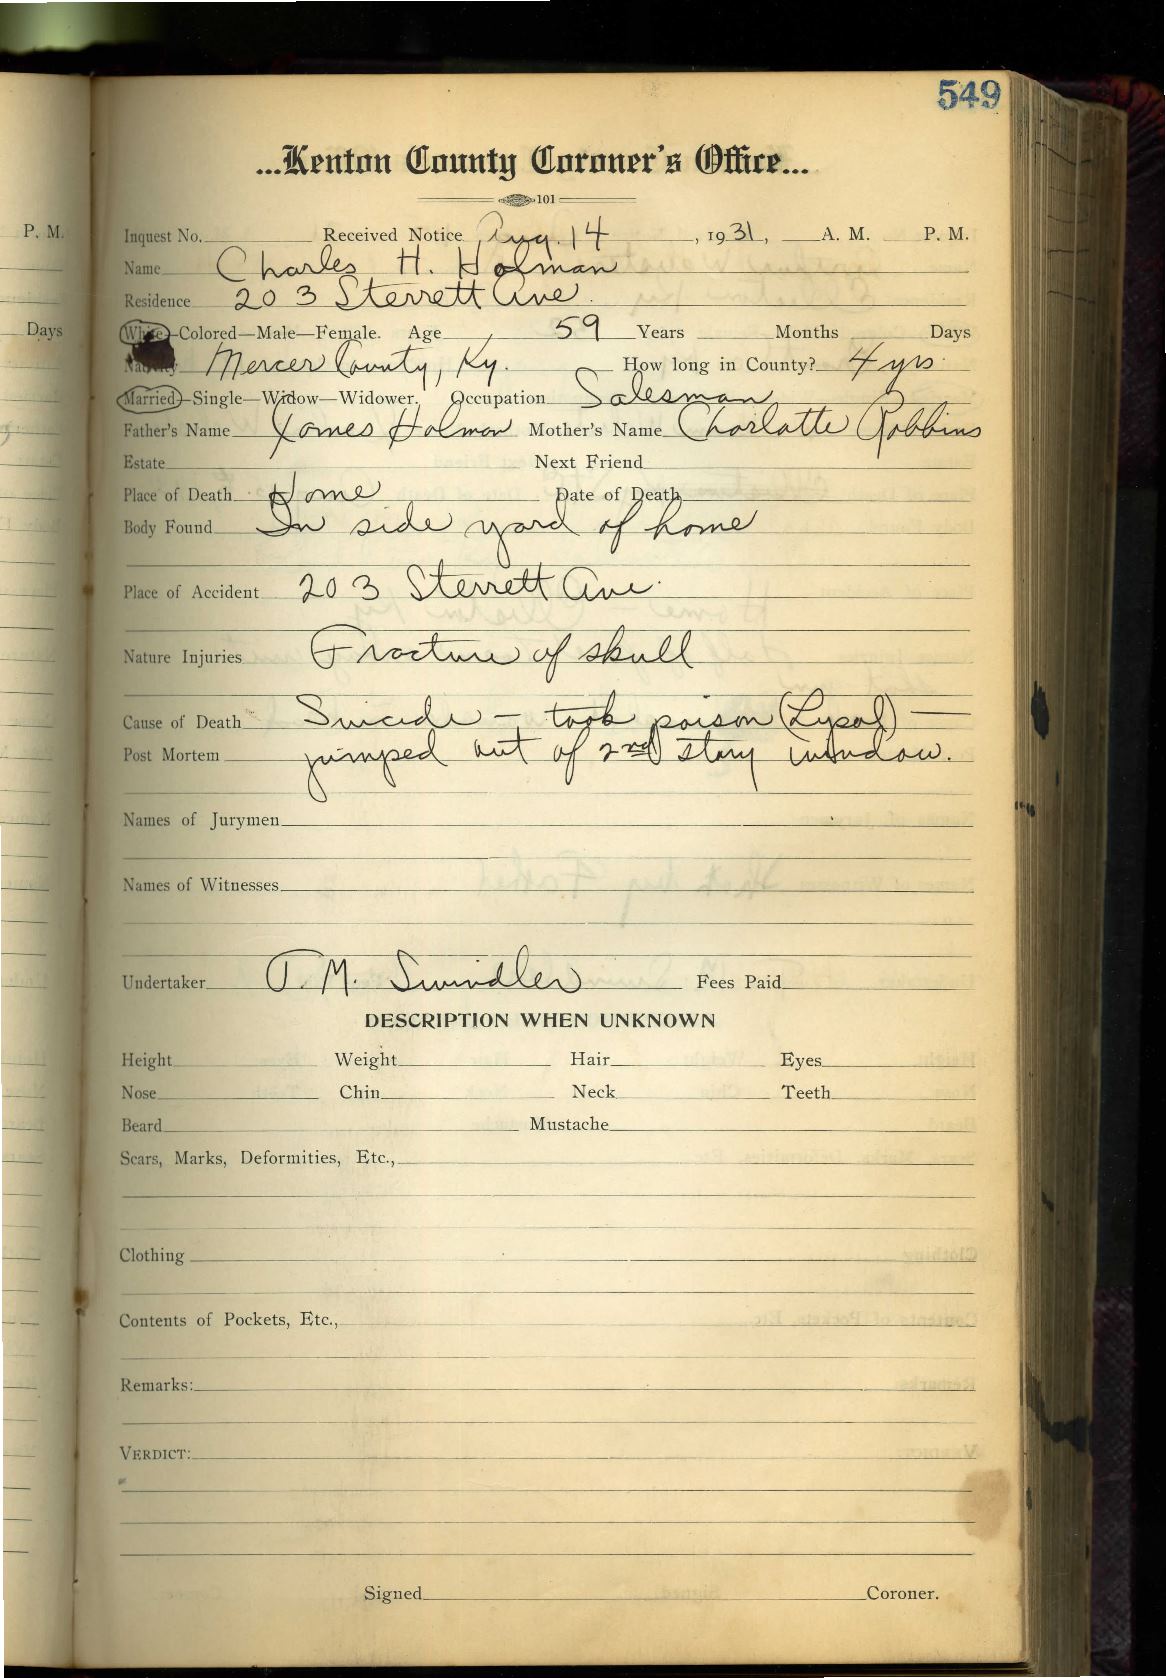 549
...Kenton County Coroner's Office...
101
P. M.
Inquest No. Received Notice Aug. 14, 1931, A. M. P. M.
Name Charles H. Holman
Residence 203 Sterrett Ave.
Days
White—Colored—Male—Female. Age 59 Years Months Days
Nativity Mercer County, Ky. How long in County? 4 yrs
Married—Single—Widow—Widower. Occupation Salesman
Father's Name James Holman Mother's Name Charlotte Robbins
Estate Next Friend
Place of Death Home Date of Death
Body Found In side yard of home
Place of Accident 203 Sterrett Ave.
Nature Injuries Fracture of skull
Cause of Death Suicide — took poison (Lysol) —
Post Mortem jumped out of 2nd story window.
Names of Jurymen
Names of Witnesses
Undertaker J. M. Swindler Fees Paid
DESCRIPTION WHEN UNKNOWN
Height Weight Hair Eyes
Nose Chin Neck Teeth
Beard Mustache
Scars, Marks, Deformities, Etc.,
Clothing
Contents of Pockets, Etc.,
Remarks:
VERDICT:
Signed Coroner.